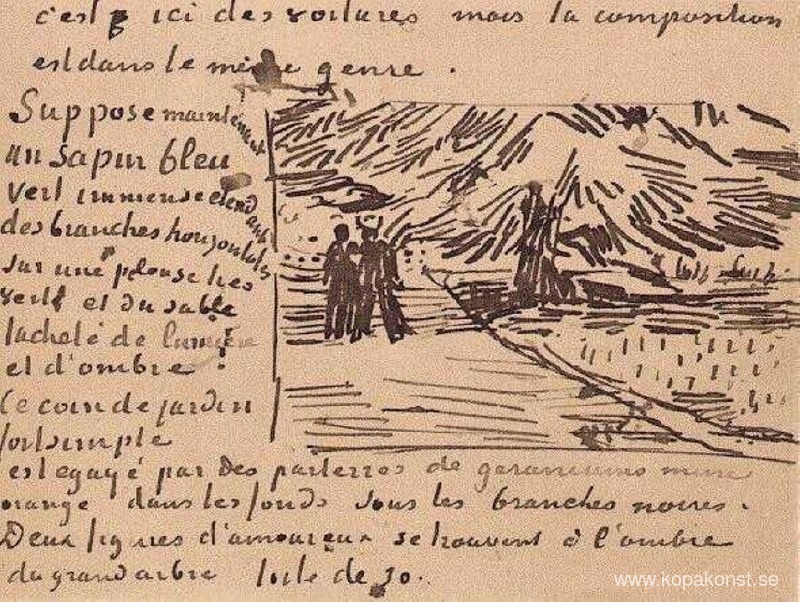 c'est ici des voitures mais la composition
est dans le même genre.
Suppose maintenant
un sapin bleu
vert immense etendant
des branches horizontales
sur une pelouse tres
verte et du sable
tacheté de lumière
et d'ombre.
Ce coin de jardin
fort simple
est egayé par des parterres de geraniums mine
orange dans les fonds sous les branches noires.
Deux figures d'amoureux se trouvent à l'ombre
du grand arbre toile de 30.
www.kopakonst.se